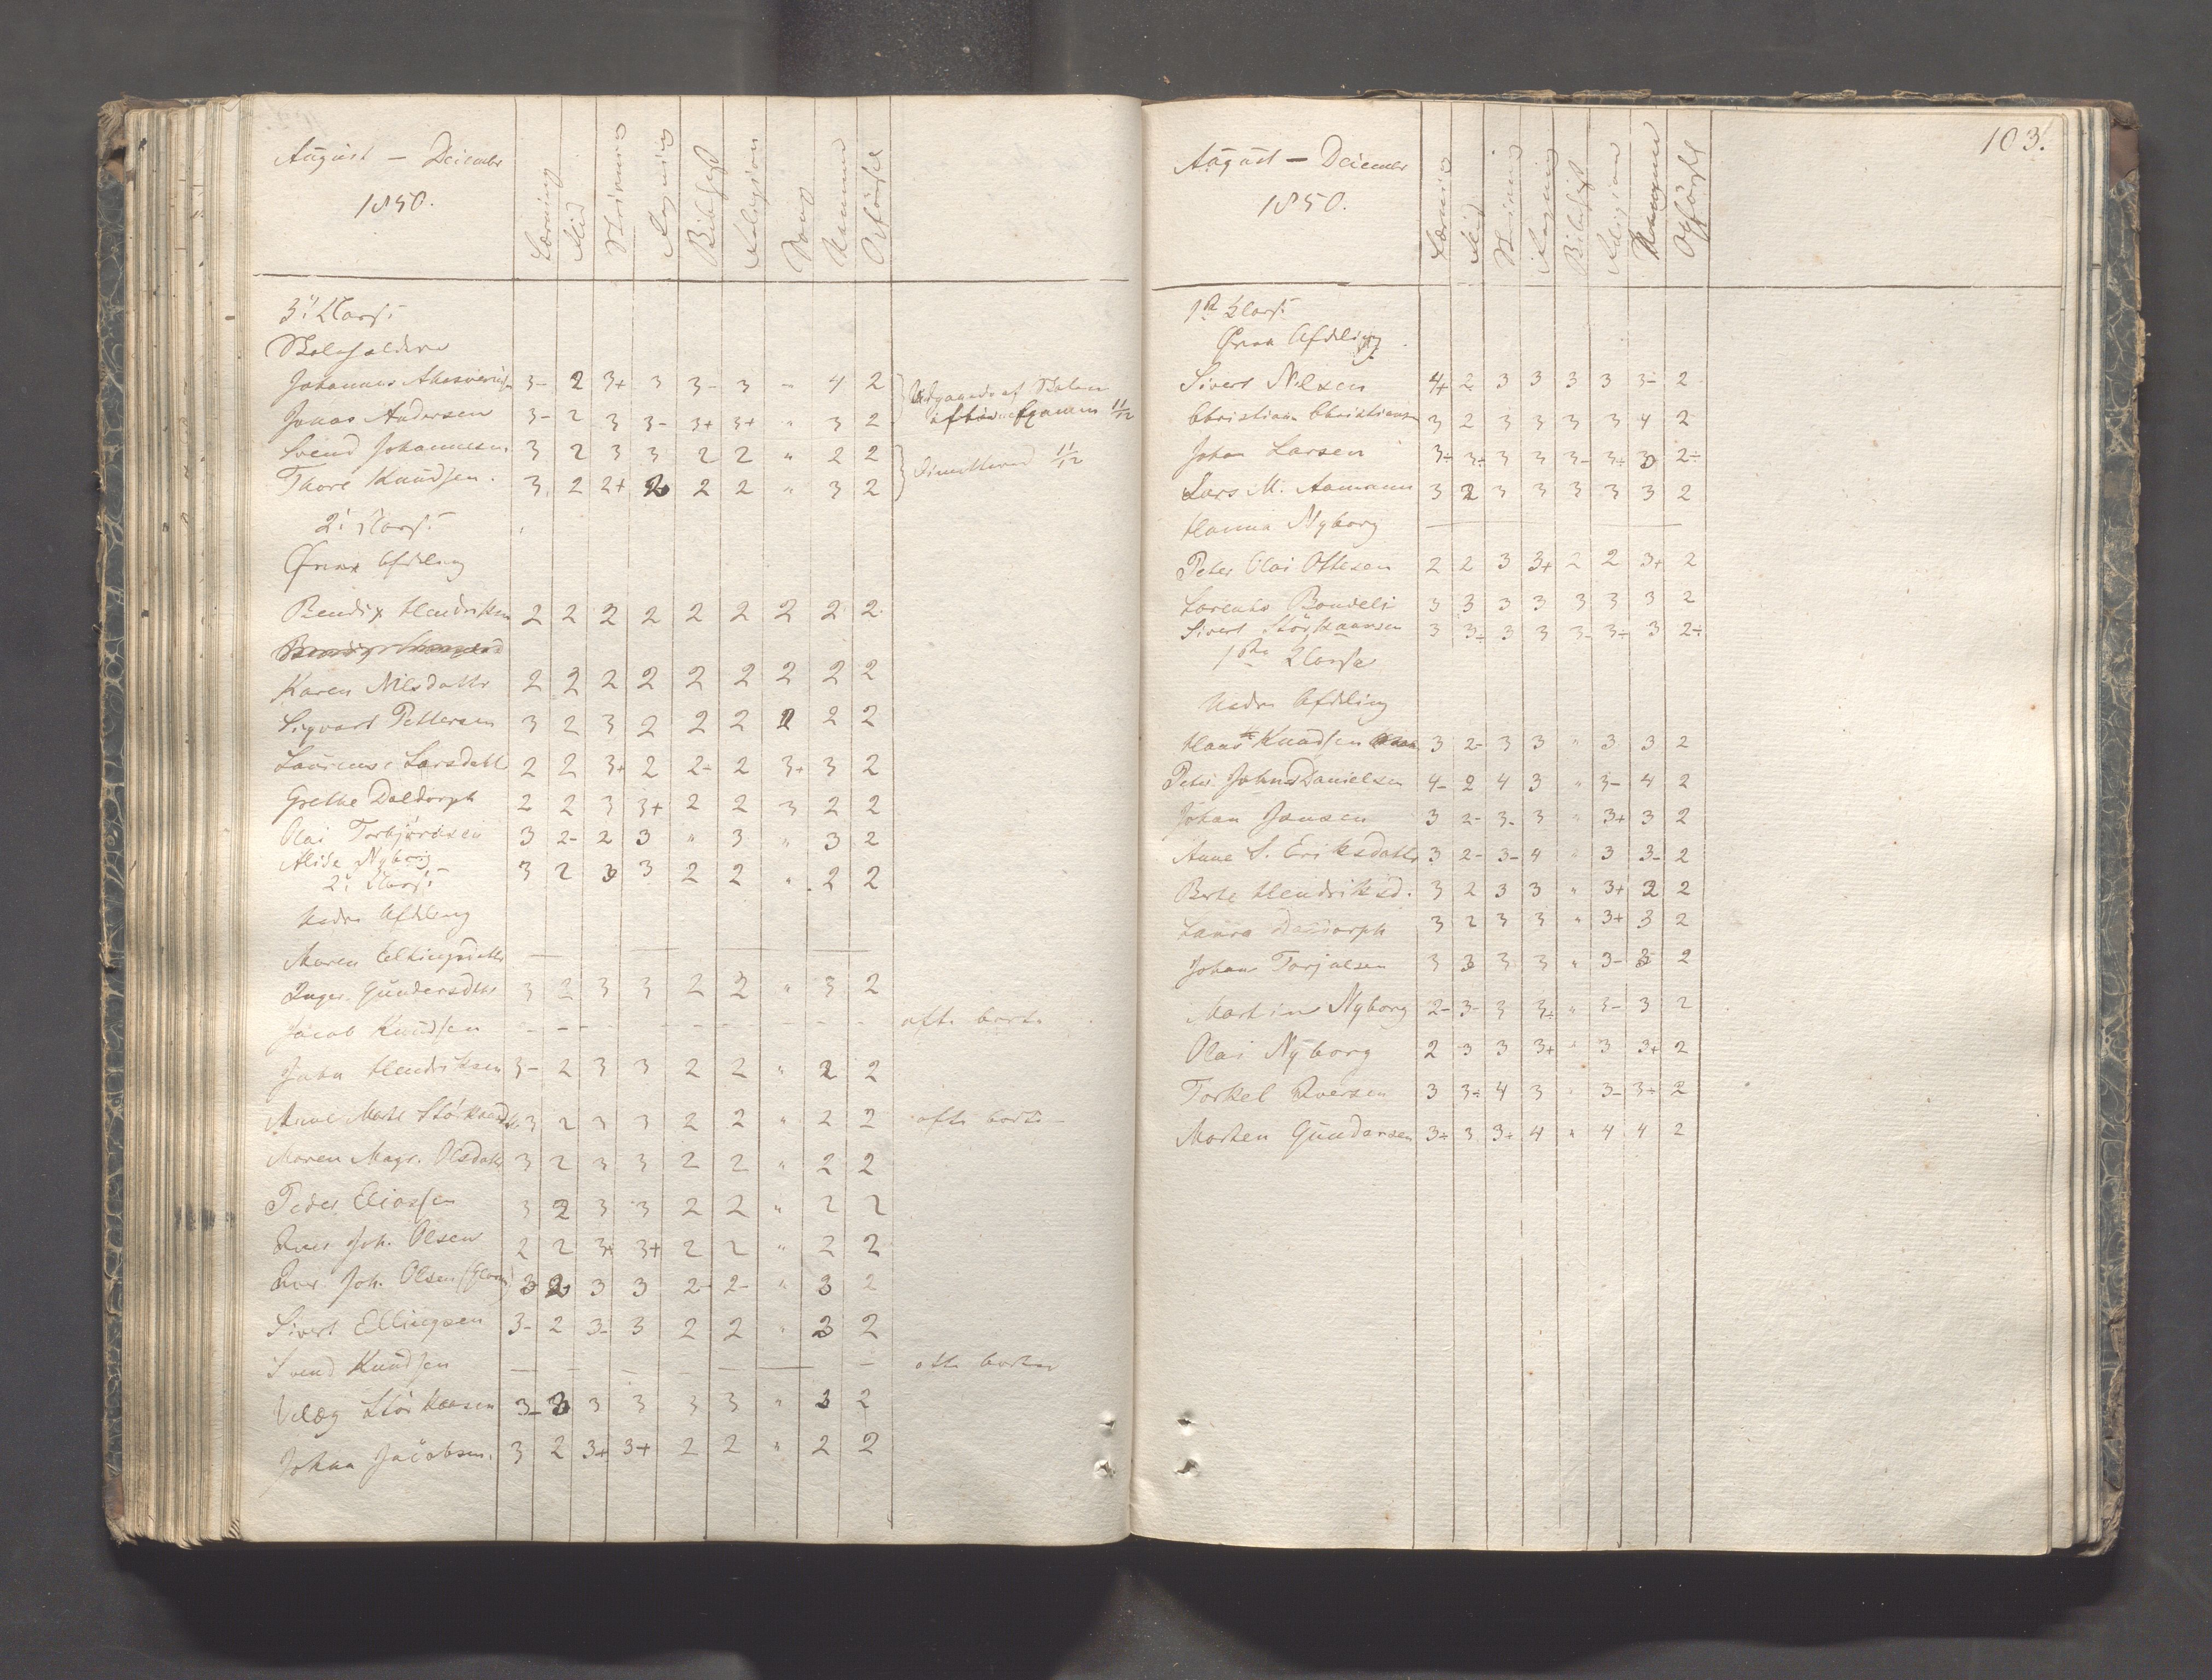 August – Decembr
1850.
Læsning Flid Skrivning Regning Bibelhist Religion Sang Examen Opførsel
3! Classe
Johannes Ahasverus 3- 2 3+ 3 3- 3 " 4 2 Udgaaede af Skolen
Jonas Andersen 3- 2 3 3- 3+ 3+ " 3 2 efter Examen 11/12
Svend Johannesen 3 2 3 3 2 2 " 2 2
Thore Knudsen. 3 2 2+ 2 2 2 " 3 2 Dimittered 11/12
2! Classe
Øvre Afdeling
Bendix Hendriksen 2 2 2 2 2 2 2 2 2
Karen Nilsdattr 2 2 2 2 2 2 2 2 2
Sigvart Pettersen 3 2 3 2 2 2 2 2 2
Laurense Larsdattr 2 2 3+ 2 2- 2 3+ 3 2
Grethe Daldorph 2 2 3 3+ 2 2 3 2 2
Olai Torbjörnsen 3 2- 2 3 " 3 " 3 2
Alise Nyborg 3 2 3 3 2 2 " 2 2
2! Classe
Nedre Afdeling
Maren Ellingsdattr — — — —
Inger Gundersdtr 3 2 3 3 2 2 " 3 2
Jacob Knudsen - - - - - - - - - ofte borte
John Hendriksen 3- 2 3 3 2 2 " 2 2
Anne Marte Störkensd. 3 2 3 3 2 2 " 2 2 ofte borte –
Maren Magr. Olsdattr 3 2 3 3 2 2 " 2 2
Peder Eliassen 3 2 3 3 2 2 " 2 2
Iver Joh. Olsen 2 2 3+ 3+ 2 2 " 2 2
Iver Joh. Olsen 3 2 3 3 2- 2- " 3 2
Sivert Ellingsen 3- 2 3- 3 2 2 " 3 2
Svend Knudsen — – — – — – ofte borte
Störkensen 3- 3 3 3 3 3 " 3 2
Johan Jacobsen. 3 2 3+ 3+ 2 2 " 2 2
103.
August – Decembr
1850.
Læsning Flid Skrivning Regning Bibelhist Religion Examen Opførsel
1ste Classe
Øvre Afdeling
Sivert Nilsen 4+ 2 3 3 3 3 3- 2
Christian Christiansen 3 2 3 3 3 3 4 2
Johan Larsen 3÷ 3÷ 3 3 3- 3÷ 3 2÷
Lars M. Aamann 3 2 3 3 3 3 3 2
Hanna Nyborg — —
Peter Olai Ottesen 2 2 3 3+ 2 2 3+ 2
Lorents Bondeli 3 3 3 3 3 3 3 2
Sivert Störkansen 3 3÷ 3 3 3- 3÷ 3 2÷
1ste Classe
Nedre Afdeling
Hans Knudsen 3 2- 3 3 " 3 3 2
Peter Johns Danielsen 4- 2 4 3 " 3- 4 2
Johan Jansen 3 2- 3- 3 " 3+ 3 2
Anne S. Eriksdattr 3 2- 3- 4 " 3 3- 2
Berte Hendriksd. 3 2 3 3 " 3+ 2 2
Laura Daldorph 3 2 3 3 " 3+ 3 2
Johan Torjulsen 3 3 3 3 " 3- 3 2
Martin Nyborg 2- 3- 3 3÷ " 3- 3 2
Olai Nyborg 2 3 3 3+ " 3 3+ 2
Torkel Iversen 3 3÷ 4 3 " 3- 3÷ 2
Morten Gundersen 3÷ 3 3÷ 4 " 4 4 2